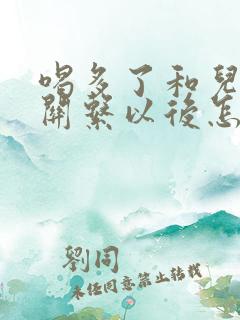 喝多了和兒
關繫以後怎
劉同
未经同意禁止转载